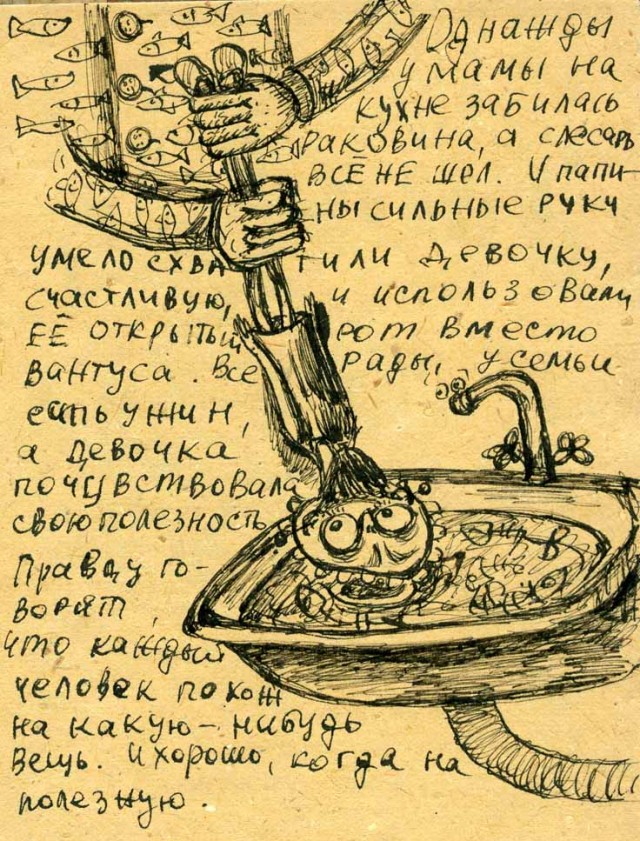 Однажды
у мамы на
кухне забилась
раковина, а слесарь
всё не шел. И папи-
ны сильные руки
умело схватили девочку,
счастливую, и использовали
её открытый рот вместо
вантуса. Все рады, у семьи
есть ужин,
а девочка
почувствовала
свою полезность
Правду го-
ворят,
что каждый
человек похож
на какую-нибудь
вещь. И хорошо, когда на
полезную.